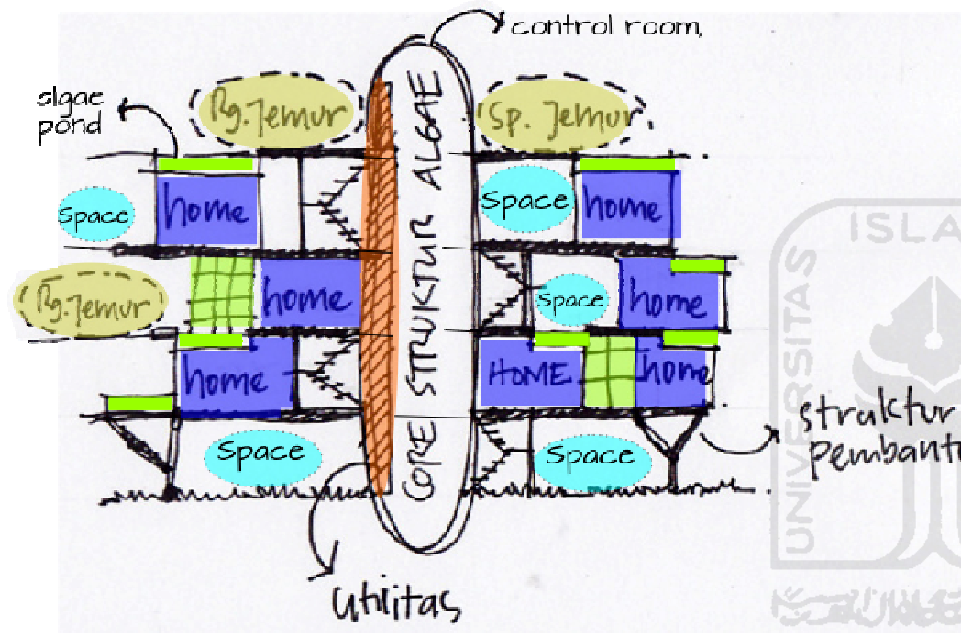 control room,
algae
pond
Rg. Jemur
Sp. Jemur
CORE STRUKTUR ALGAE
Space
home
Space
home
Rg. Jemur
home
Space
home
home
HOME
home
Space
Space
struktur
pembantu
utilitas
UNIVERSITAS
ISLA